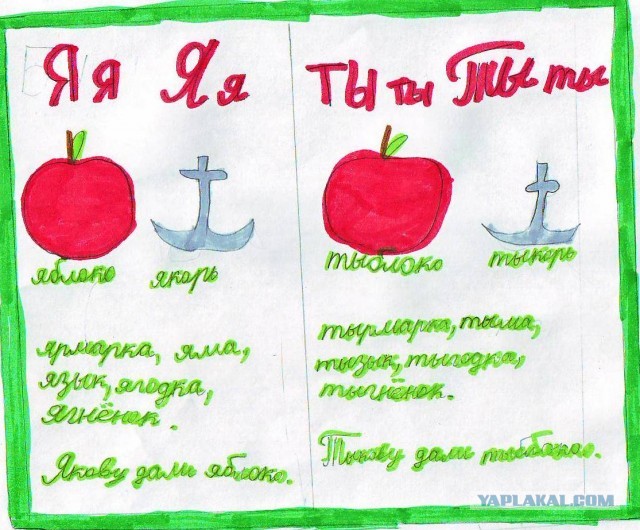 Я я Я я
яблоко якорь
ярмарка, яма,
язык, ягодка,
ягнёнок.
Якову дали яблоко.
ТЫ ты Ты ты
тыблоко тыкорь
тырмарка, тыма,
тызык, тыгодка,
тыгнёнок.
Тыкову дали тыблоко.
YAPLAKAL.COM